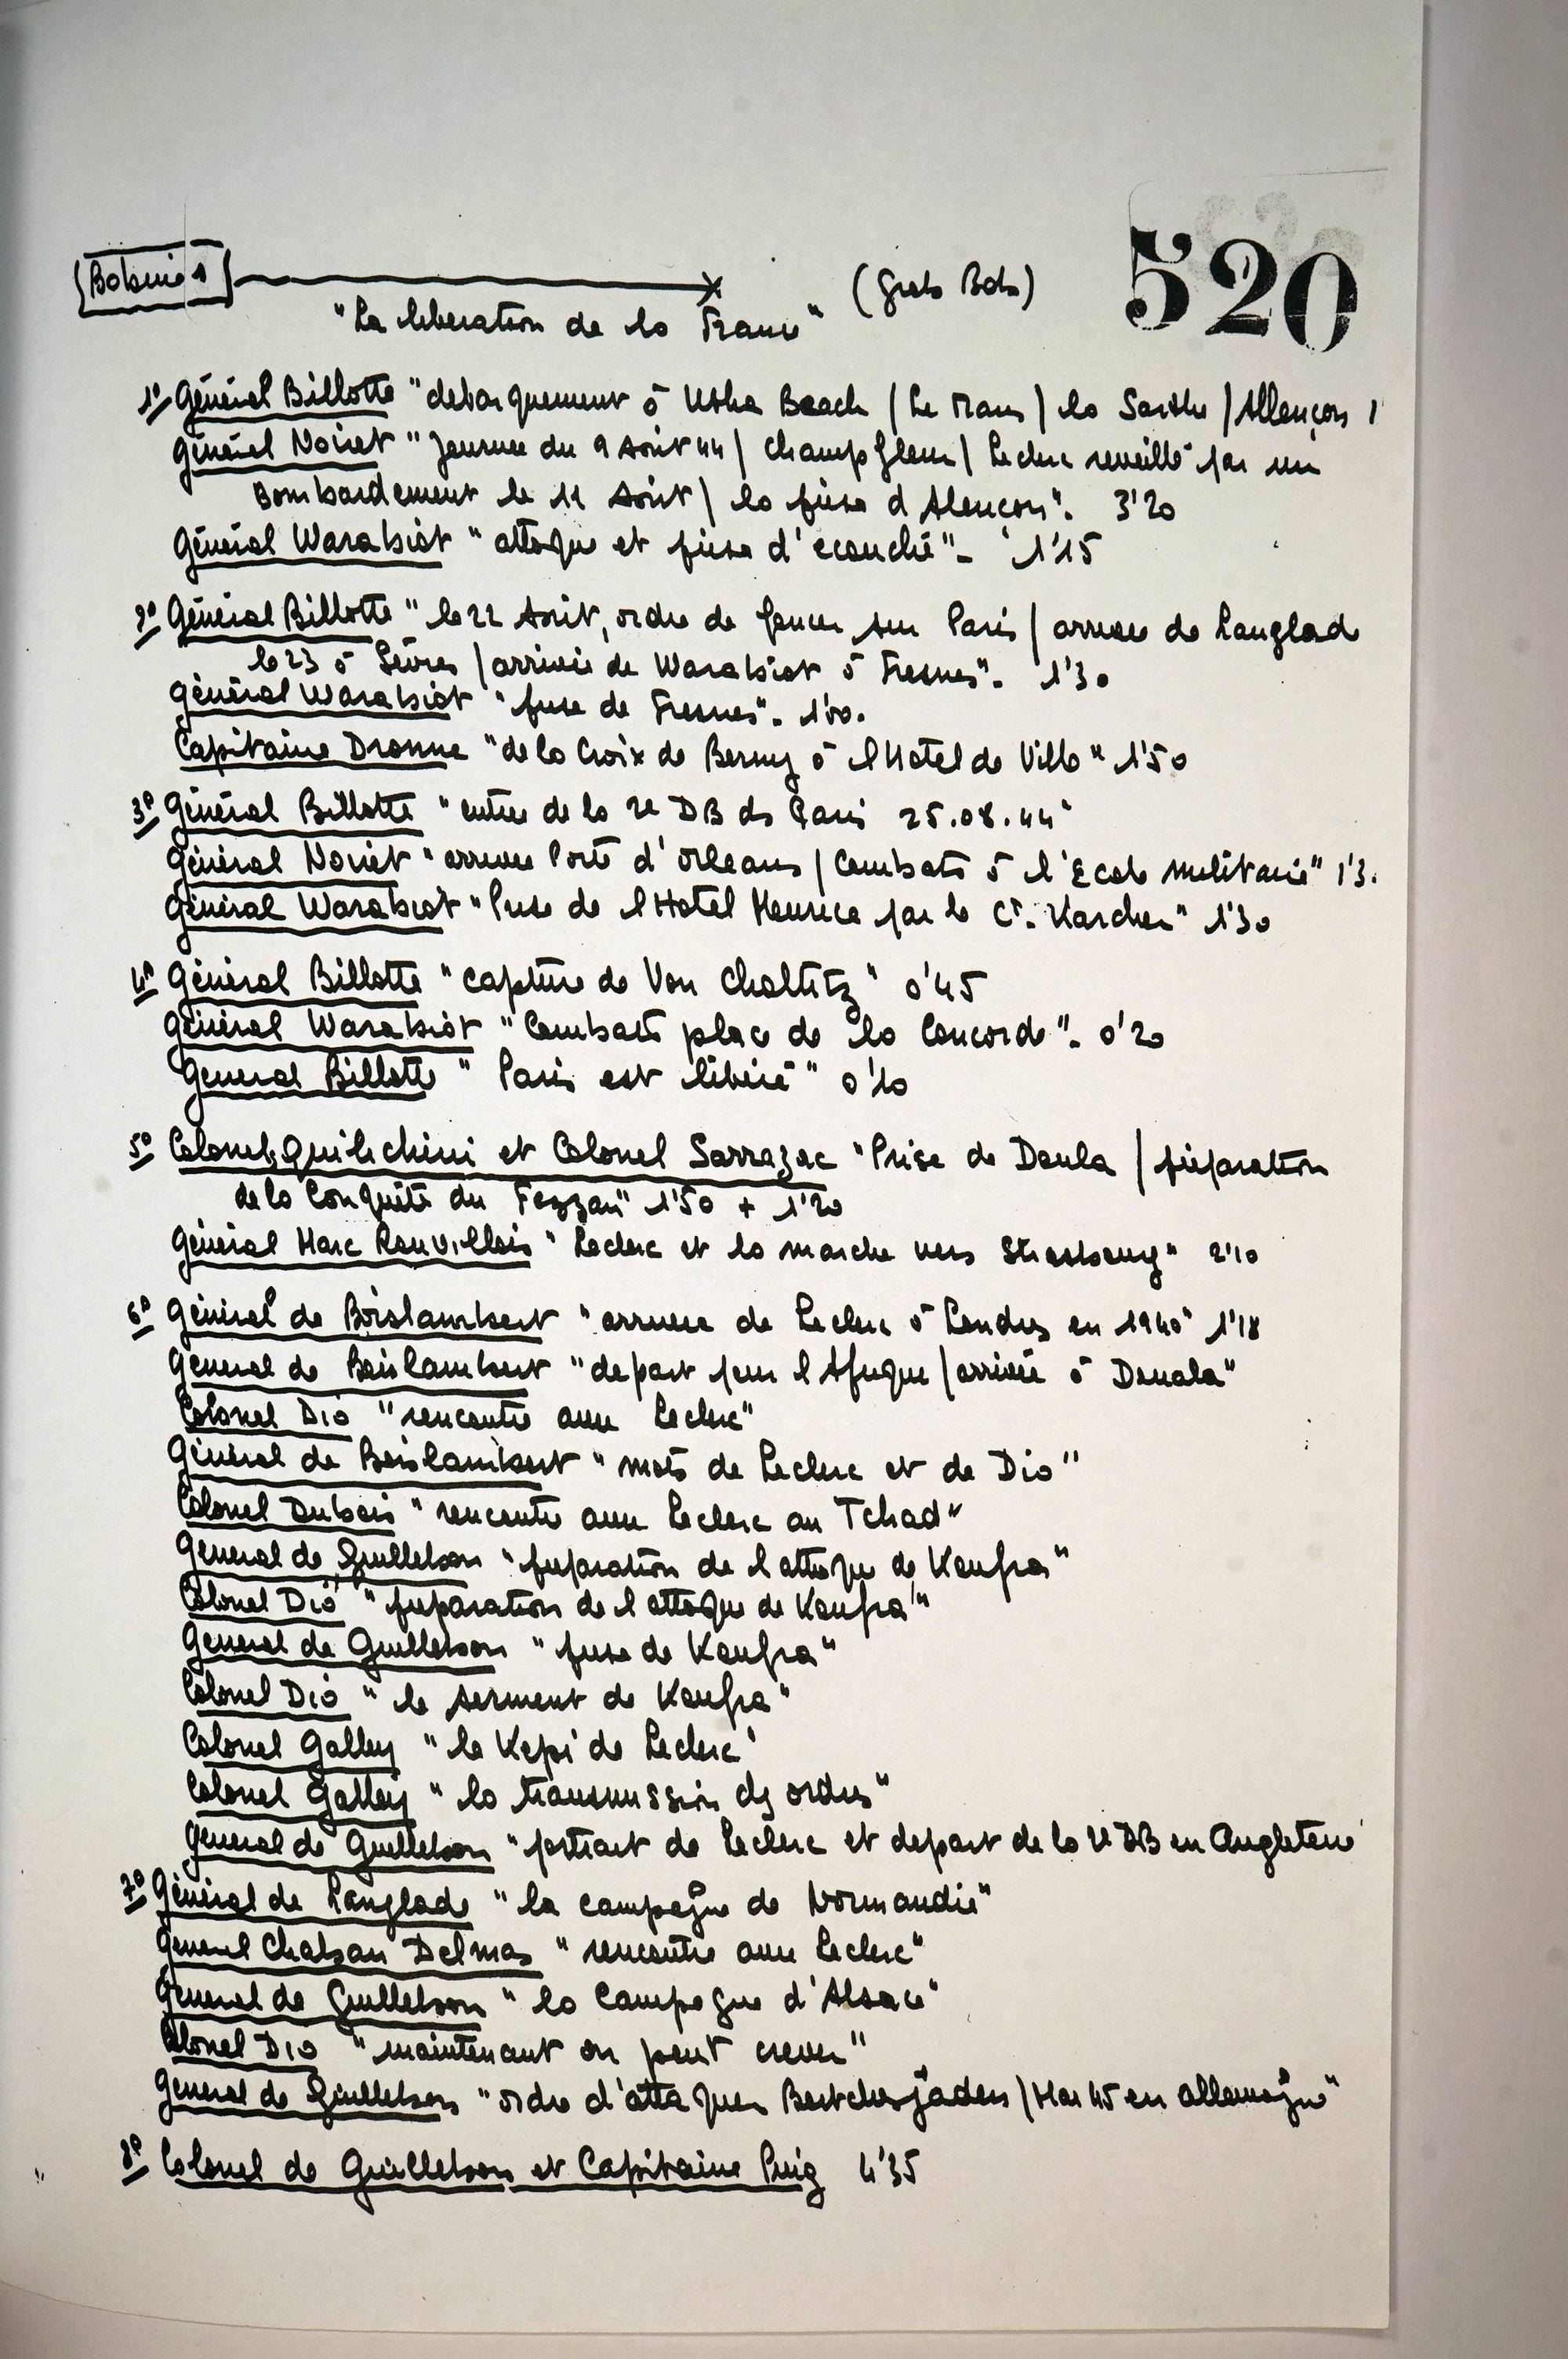 520
"La liberation de la France"
1º Général Billotte "debarquement à Utha Beach / Le Mans / la Sarthe / Allençon 1'
Général Noiret "Journee du 9 Août 44 / Champfleur / Leclerc reveillé par un
Bombardement le 11 Août / la prise d Alençon". 3'20
Général Warabiot "attaque et prise d'ecouché". 1'15
2º Général Billotte "le 22 Août, ordre de foncer sur Paris / arrivee de Langlade
le 23 à Sèvres / arrivée de Warabiot à Fresnes". 1'30
Général Warabiot "prise de Fresnes". 1'00.
Capitaine Dronne "de la Croix de Berny à l Hotel de Ville" 1'50
3º Général Billotte "entree de la 2e DB ds Paris 25.08.44"
Général Noiret "arrivee Porte d'Orleans / Combats à l'Ecole Militaire" 1'3.
Général Warabiot "Prise de l Hotel Meurice par le Ct. Karcher" 1'30
4º Général Billotte "capture de Von Choltitz" 0'45
Général Warabiot "Combats place de la Concorde". 0'20
General Billotte "Paris est libéré" 0'10
5º Colonel Quilichini et Colonel Sarrazac "Prise de Doula / préparation
de la Conquête du Fezzan" 1'50 + 1'20
Général Marc Rouvillois "Leclerc et la marche vers Strasbourg" 2'10
6º Général de Boislambert "arrivee de Leclerc à Londres en 1940" 1'18
General de Boislambert "depart pour l Afrique / arrivée à Douala"
Colonel Dio "rencontre avec Leclerc"
Général de Boislambert "mots de Leclerc et de Dio"
Colonel Dubois "rencontre avec Leclerc au Tchad"
General de Guillebon "preparation de l attaque de Koufra"
Colonel Dio "preparation de l attaque de Koufra"
General de Guillebon "prise de Koufra"
Colonel Dio "le serment de Koufra"
Colonel Galley "le Kepi de Leclerc"
Colonel Galley "la transmission des ordres"
General de Guillebon "portrait de Leclerc et depart de la 2e DB en Angleterre"
7º Général de Langlade "la campagne de Normandie"
General Chaban Delmas "rencontre avec Leclerc"
General de Guillebon "la Campagne d'Alsace"
Colonel Dio "maintenant on peut crever"
General de Guillebon "ordre d'attaquer Bertchesgaden / Mai 45 en allemagne"
8º Colonel de Guillebon et Capitaine Puig 4'35